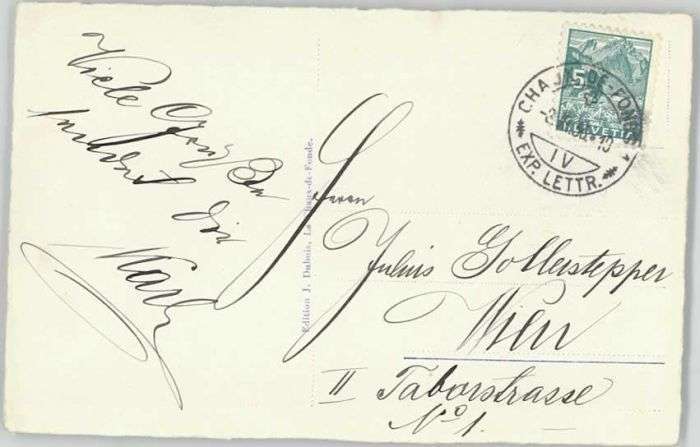 Viele Grüße
sendet dir
Karl
Edition J. Dubois, La Chaux-de-Fonds.
Herrn
Julius Gollerstepper
Wien
II Taborstrasse
No 1.
50
HELVETIA
CHAUX-DE-FONDS
IV
EXP. LETTR.